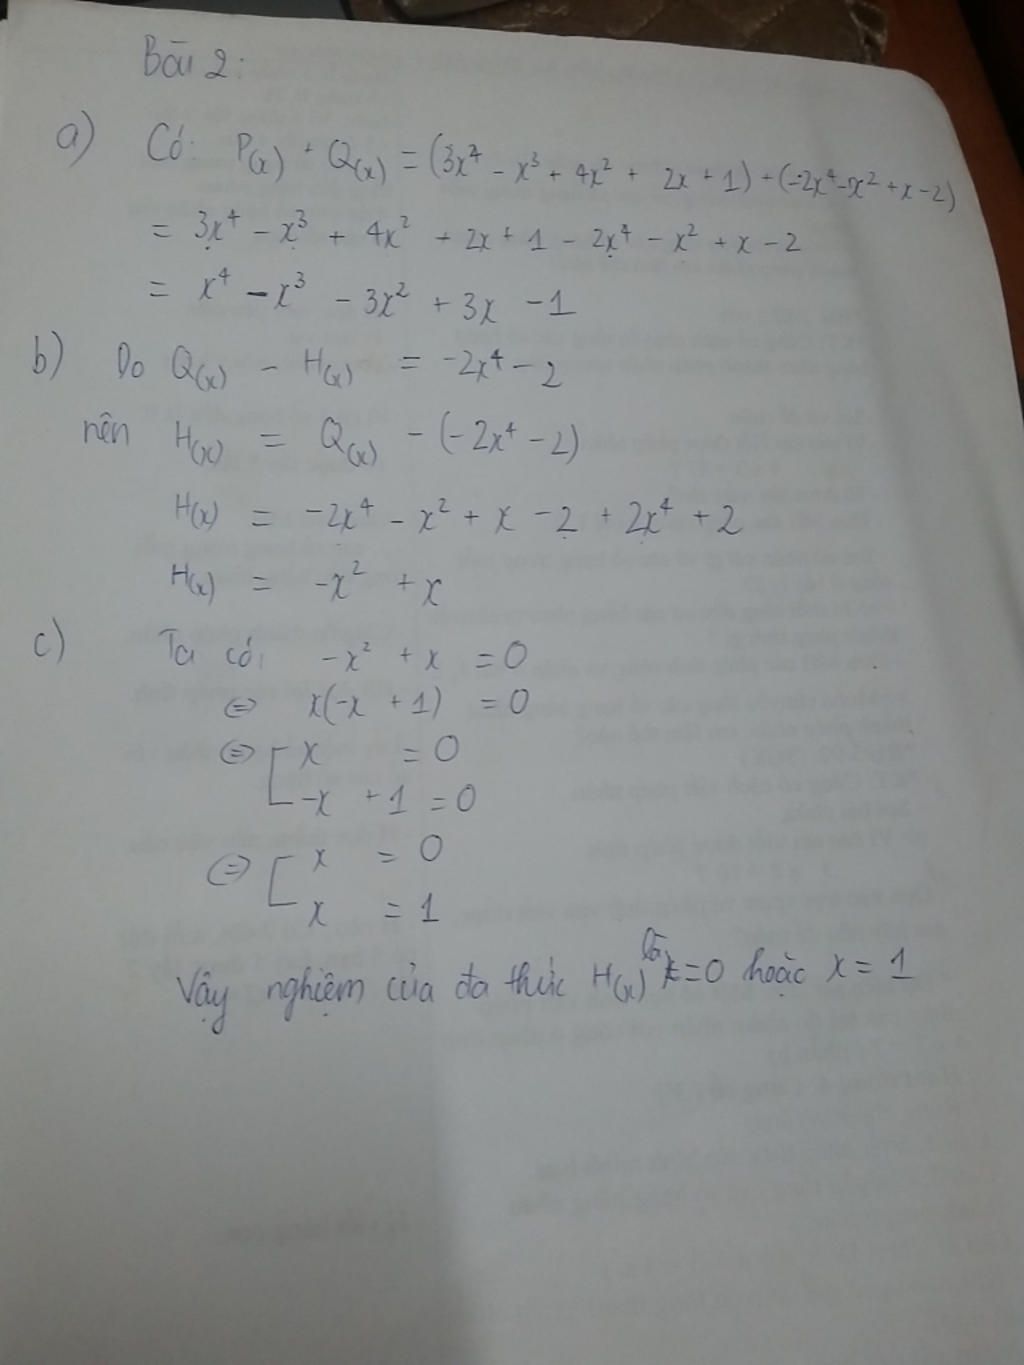 Bài 2:
a) Có: P(x) + Q(x) = (3x⁴ - x³ + 4x² + 2x + 1) + (-2x⁴ - x² + x - 2)
= 3x⁴ - x³ + 4x² + 2x + 1 - 2x⁴ - x² + x - 2
= x⁴ - x³ - 3x² + 3x - 1
b) Do Q(x) - H(x) = -2x⁴ - 2
nên H(x) = Q(x) - (-2x⁴ - 2)
H(x) = -2x⁴ - x² + x - 2 + 2x⁴ + 2
H(x) = -x² + x
c) Ta có: -x² + x = 0
⇔ x(-x + 1) = 0
⇔ [ x = 0
-x + 1 = 0
⇔ [ x = 0
x = 1
Vậy nghiệm của đa thức H(x) là x = 0 hoặc x = 1